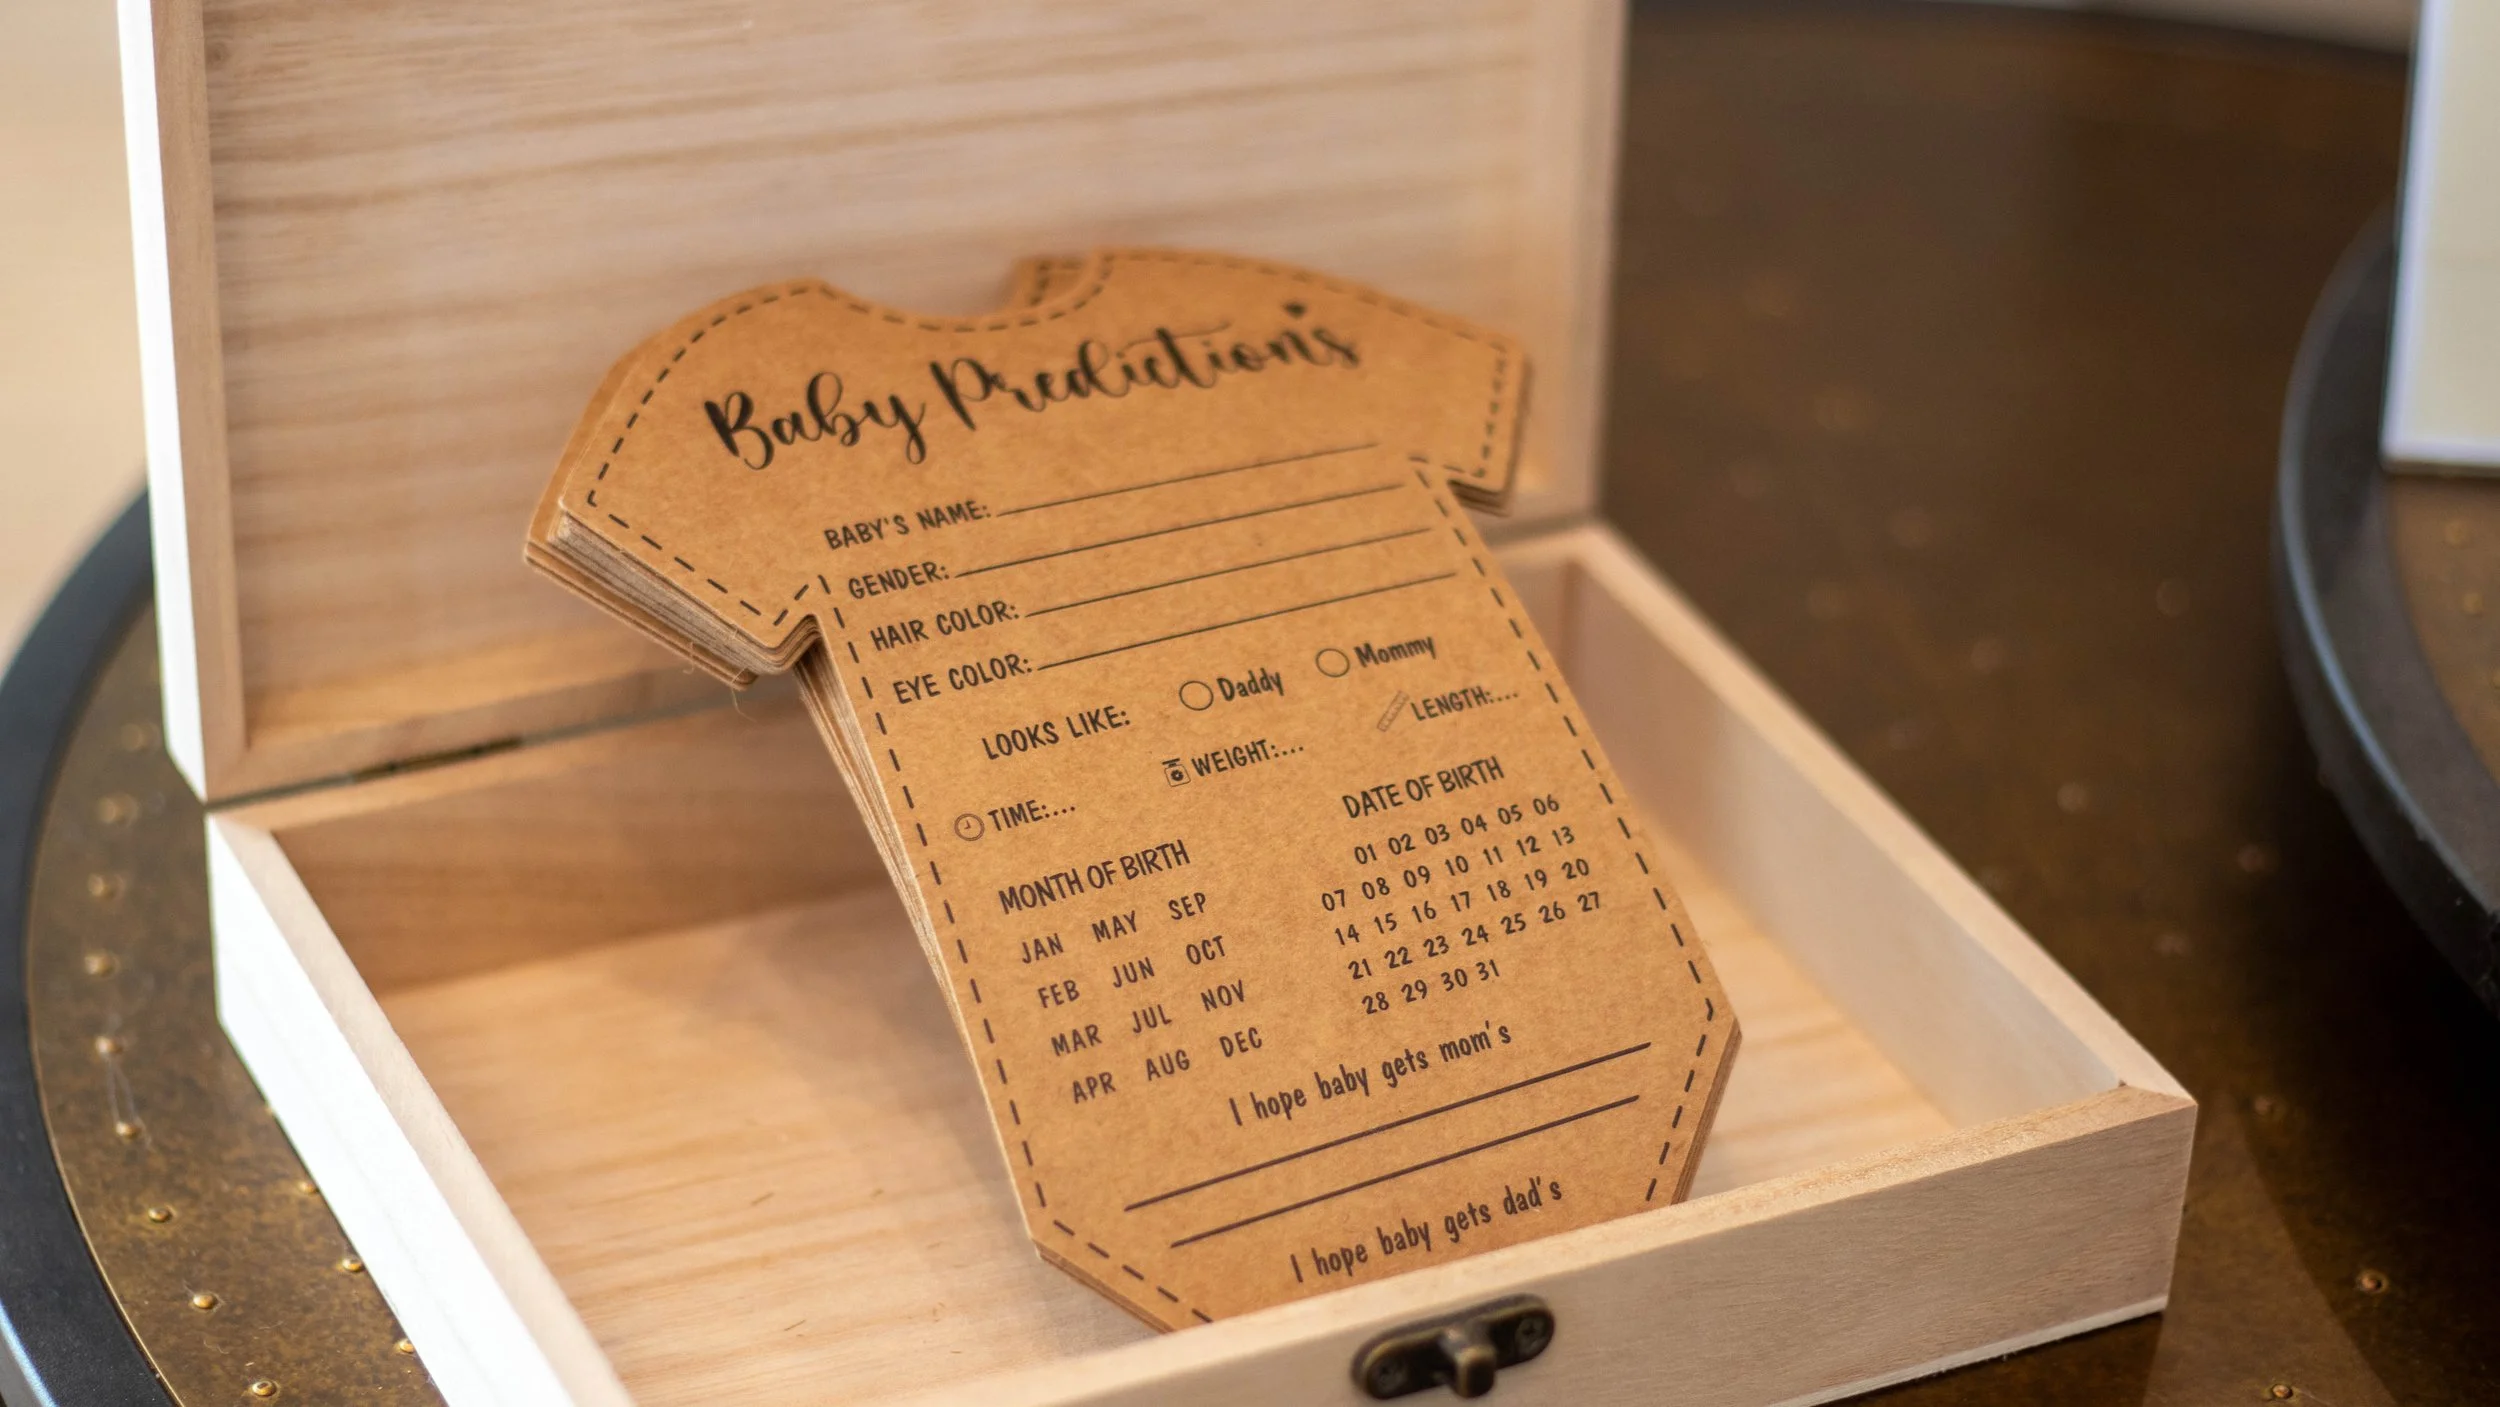 Baby Predictions
BABY'S NAME:
GENDER:
HAIR COLOR:
EYE COLOR:
LOOKS LIKE: Daddy Mommy
TIME:... WEIGHT:... LENGTH:...
MONTH OF BIRTH
JAN MAY SEP
FEB JUN OCT
MAR JUL NOV
APR AUG DEC
DATE OF BIRTH
01 02 03 04 05 06
07 08 09 10 11 12 13
14 15 16 17 18 19 20
21 22 23 24 25 26 27
28 29 30 31
I hope baby gets mom's
I hope baby gets dad's